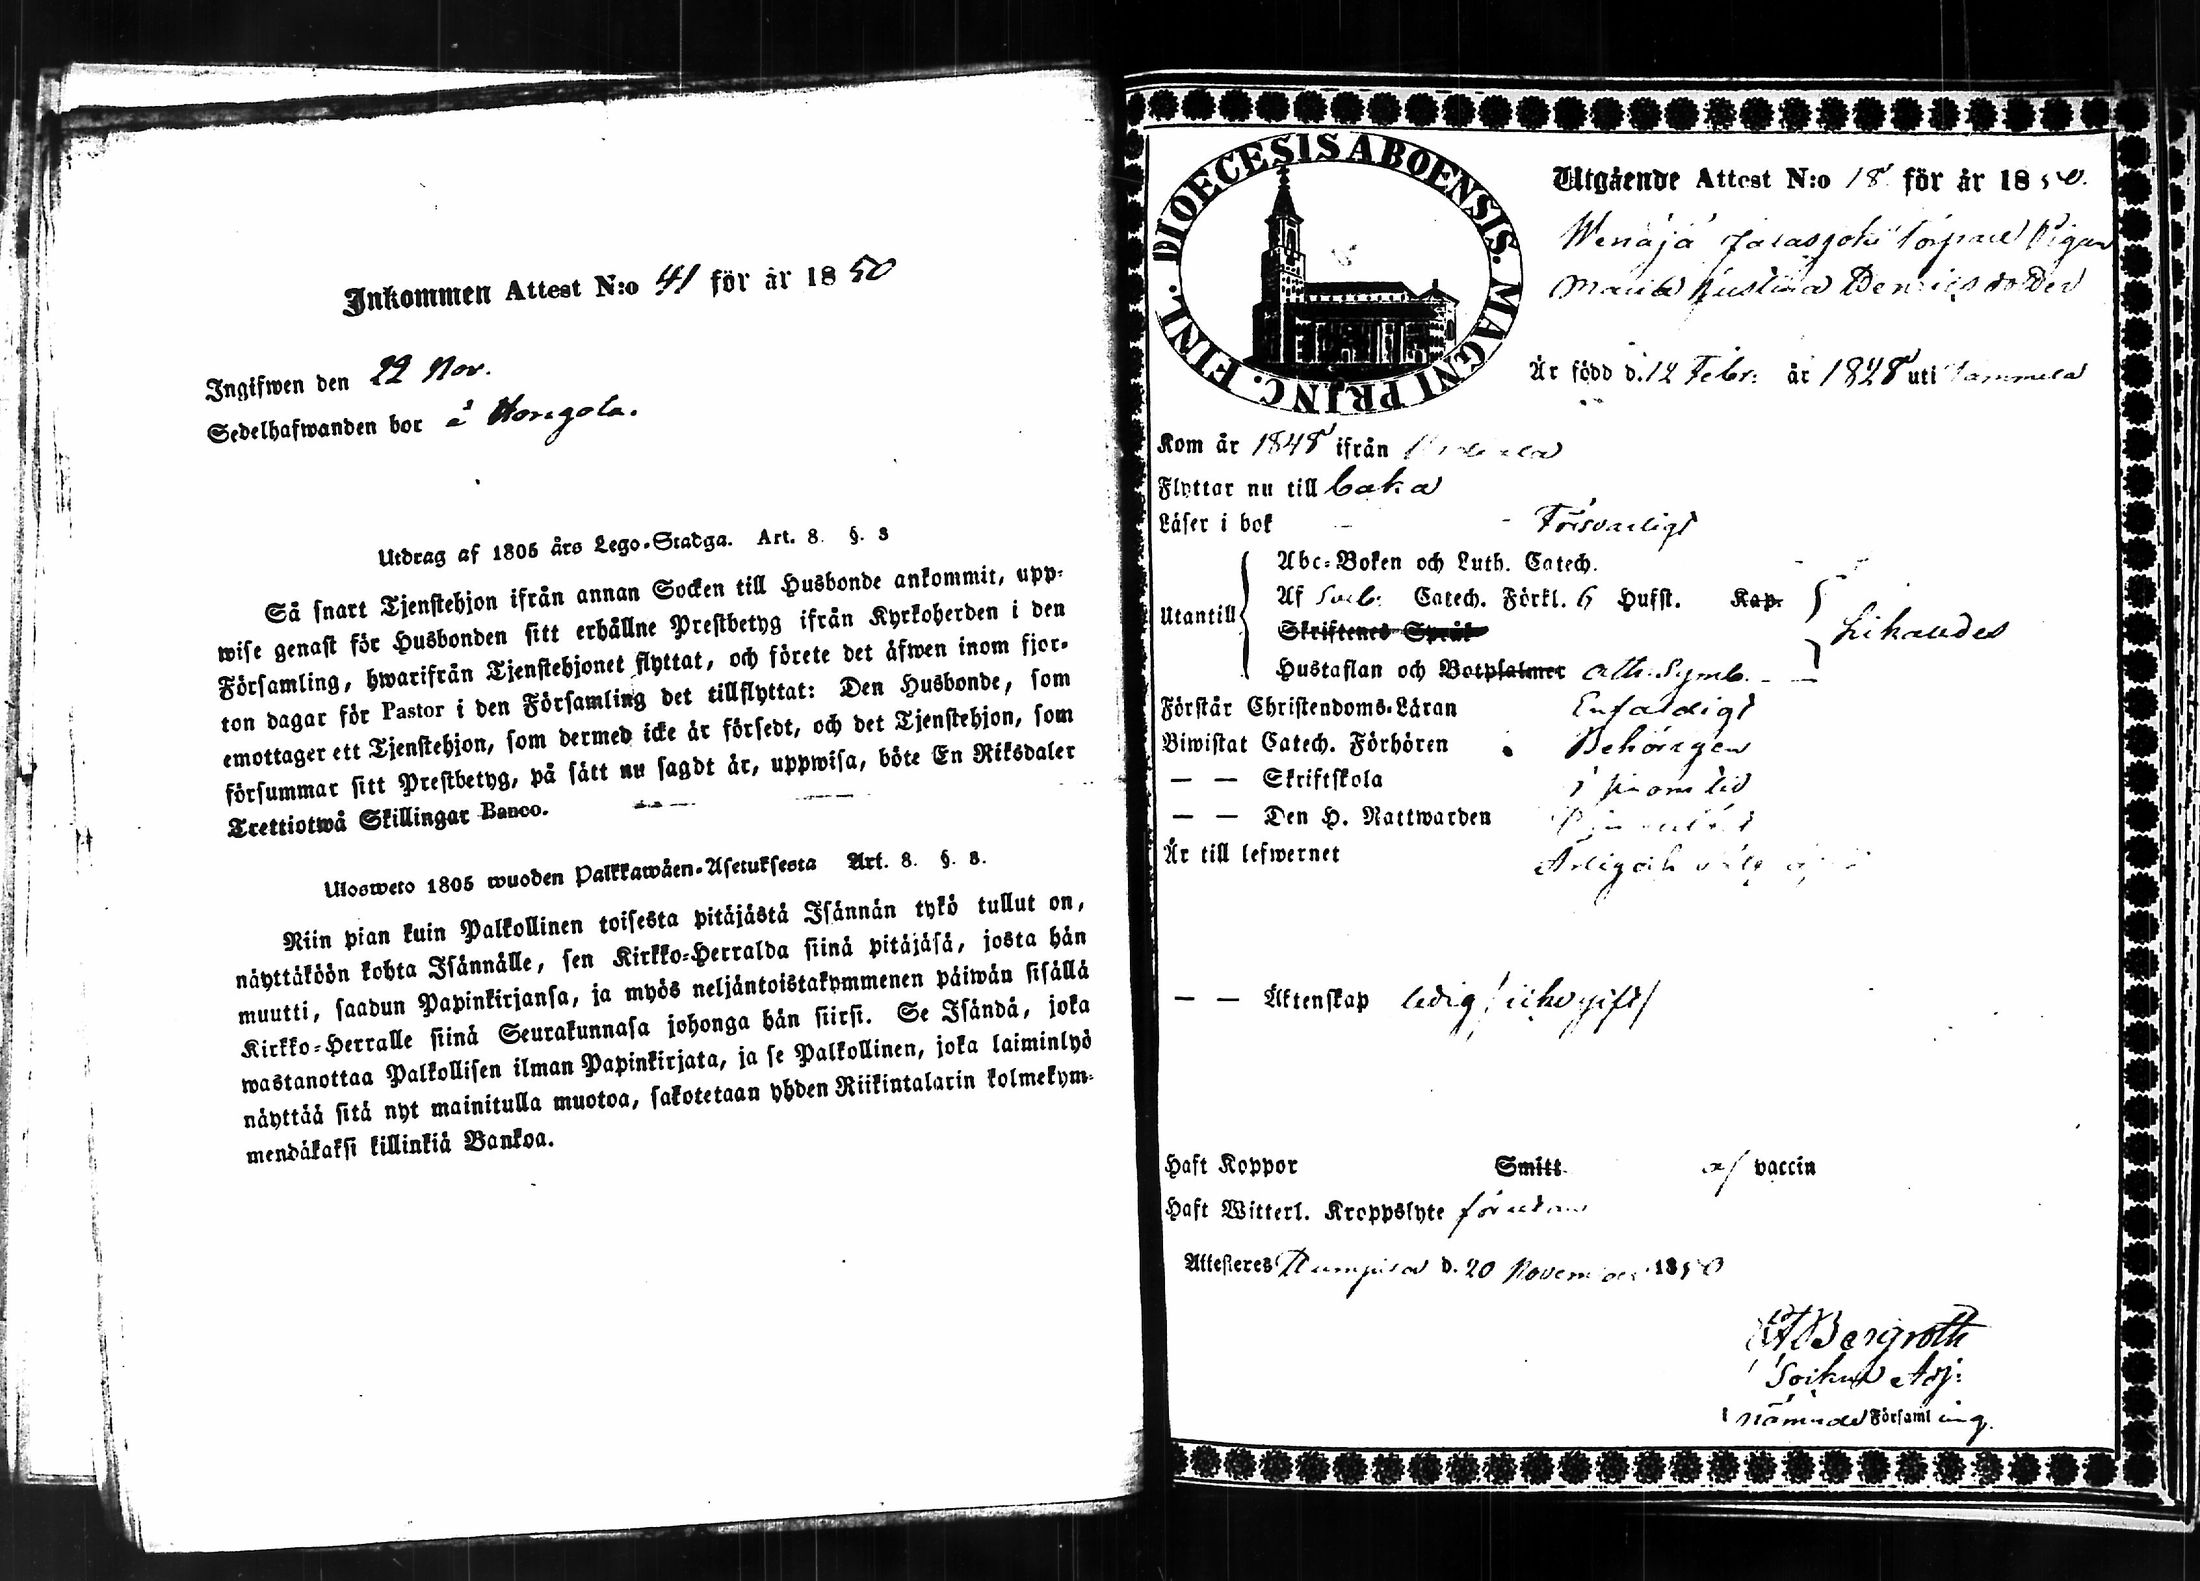 Inkommen Attest N:o 41 för år 1850
Ingifwen den 22 Nov.
Sedelhafwanden bor å Hongola.
Utdrag af 1805 års Lego-Stadga. Art. 8. §. 3
Så snart Tjenstehjon ifrån annan Socken till Husbonde ankommit, upp-
wise genast för Husbonden sitt erhållne Prestbetyg ifrån Kyrkoherden i den
Församling, hwarifrån Tjenstehjonet flyttat, och förete det äfwen inom fjor-
ton dagar för Pastor i den Församling det tillflyttat: Den Husbonde, som
emottager ett Tjenstehjon, som dermed icke är försedt, och det Tjenstehjon, som
försummar sitt Prestbetyg, på sätt nu sagdt är, uppwisa, böte En Riksdaler
Trettiotwå Skillingar Banco.
Ulosweto 1805 wuoden Palkkawäen-Asetuksesta Art. 8. §. 3.
Niin pian kuin Palkollinen toisesta pitäjästä Isännän tykö tullut on,
näyttäköön kohta Isännälle, sen Kirkko-Herralda siinä pitäjäsä, josta hän
muutti, saadun Papinkirjansa, ja myös neljäntoistakymmenen päiwän sisällä
Kirkko-Herralle siinä Seurakunnasa johonga hän siirsi. Se Isändä, joka
wastanottaa Palkollisen ilman Papinkirjata, ja se Palkollinen, joka laiminlyö
näyttää sitä nyt mainitulla muotoa, sakotetaan yhden Riikintalarin kolmekym-
mendäkaksi killinkiä Bankoa.
DIOECESIS ABOENSIS. MAGNI PRINC. FINL.
Utgående Attest N:o 18 för år 1850.
Wenäjä Torpare Pigan
Maria Justina Henricsdotter
Är född d. 12 Febr. år 1828 uti Tammela
Kom år 1848 ifrån
Flyttar nu till
Läser i bok - - Försvarligt
Abc-Boken och Luth. Catech.
Utantill Af Sveb. Catech. Förkl. 6 Hufst. Kap. Likaledes
Skriftenes Språk
Hustaflan och Botpsalmer Ath. Symb.
Förstår Christendoms-Läran Enfaldigt
Biwistat Catech. Förhören Behörigen
— — Skriftskola i sin om tid
— — Den H. Nattwarden
Är till lefwernet
— — Äktenskap ledig / icke gift /
Haft Koppor Smitt. af vaccin
Haft Witterl. Kroppslyte förutan
Attesteres Humppila d. 20 November 1850
Bergroth
Sockne Adj:
i nämnde Församling.